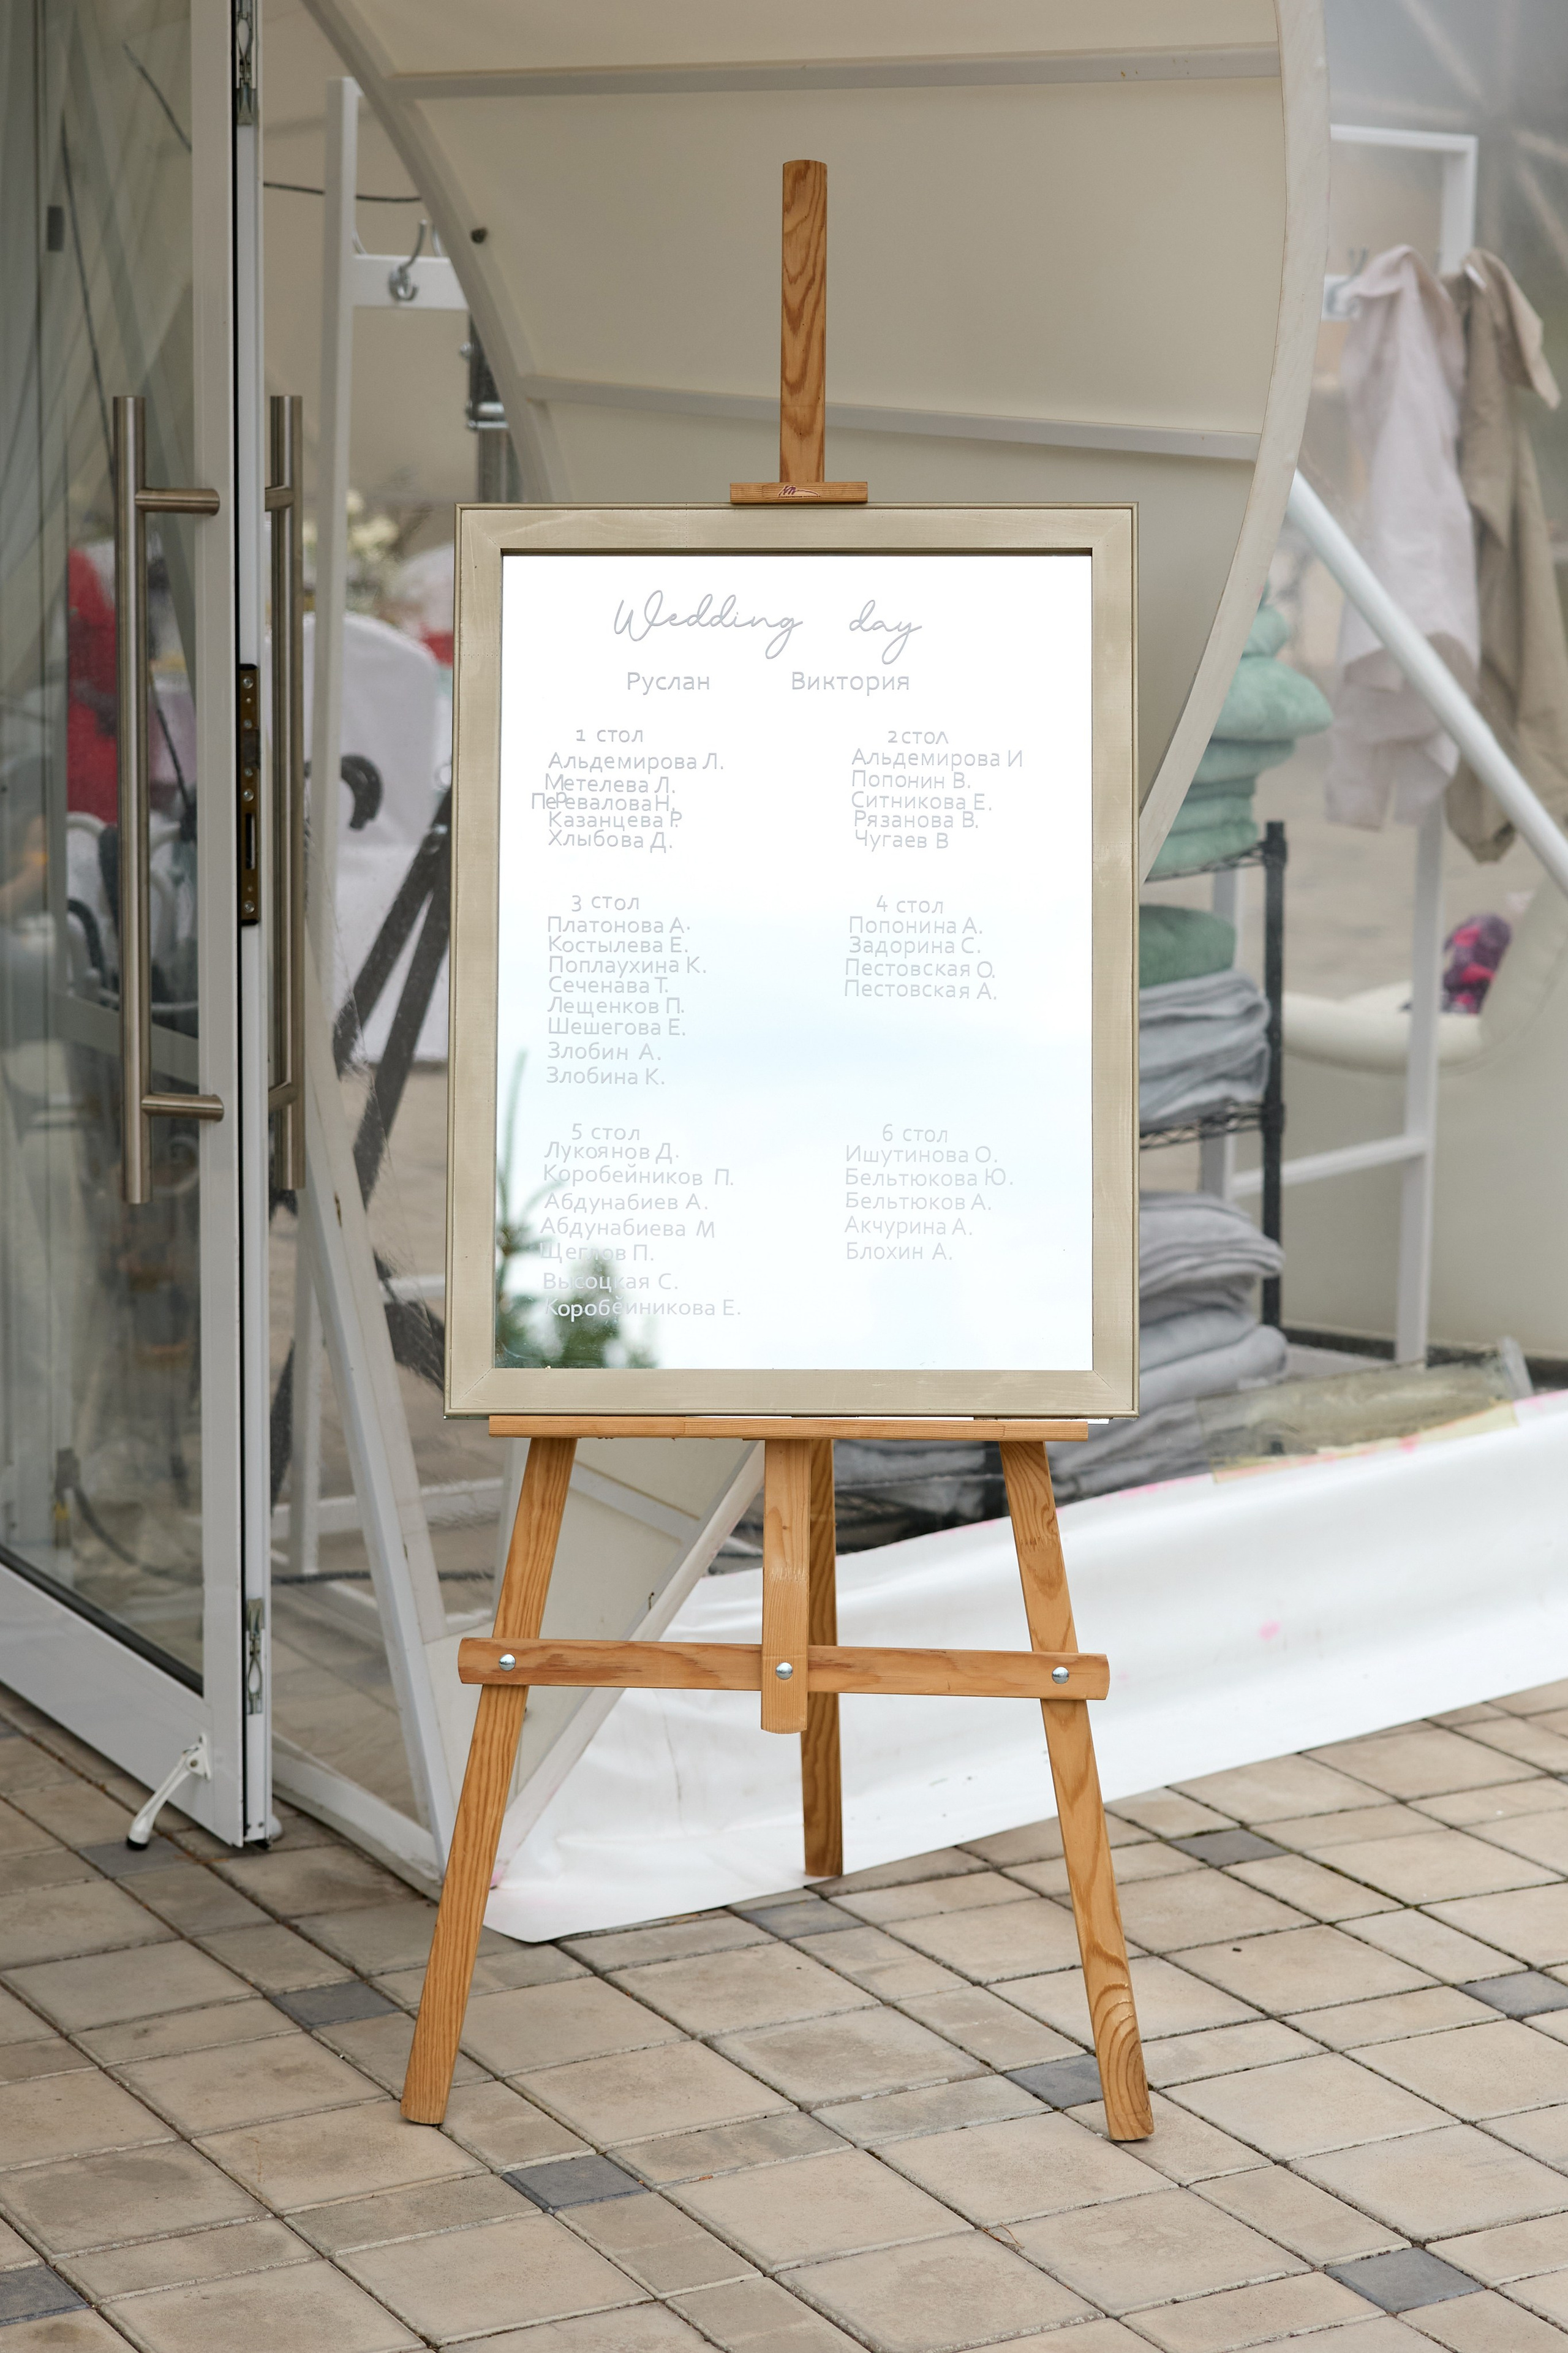 Wedding day
Руслан Виктория
1 стол
Альдемирова Л.
Метелева Л.
Перевалова Н.
Казанцева Р
Хлыбова Д.
2 стол
Альдемирова И
Попонин В.
Ситникова Е.
Рязанова В.
Чугаев В
3 стол
Платонова А.
Костылева Е.
Поплаухина К.
Сеченава Т.
Лещенков П.
Шешегова Е.
Злобин А.
Злобина К.
4 стол
Попонина А.
Задорина С.
Пестовская О.
Пестовская А.
5 стол
Лукоянов Д.
Коробейников П.
Абдунабиев А.
Абдунабиева М
Щеглов П.
Высоцкая С.
Коробейникова Е.
6 стол
Ишутинова О.
Бельтюкова Ю.
Бельтюков А.
Акчурина А.
Блохин А.